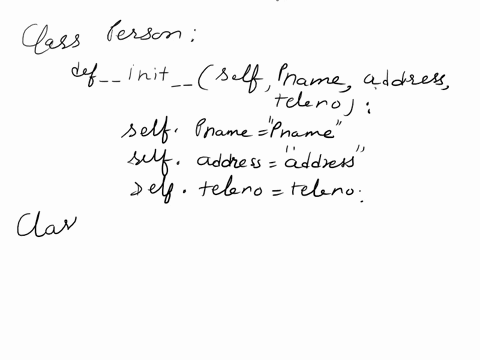 Class Person:
def__init__(self, Pname, address,
teleno):
self. Pname = "Pname"
self. address = "address"
self. teleno = teleno:
Clas